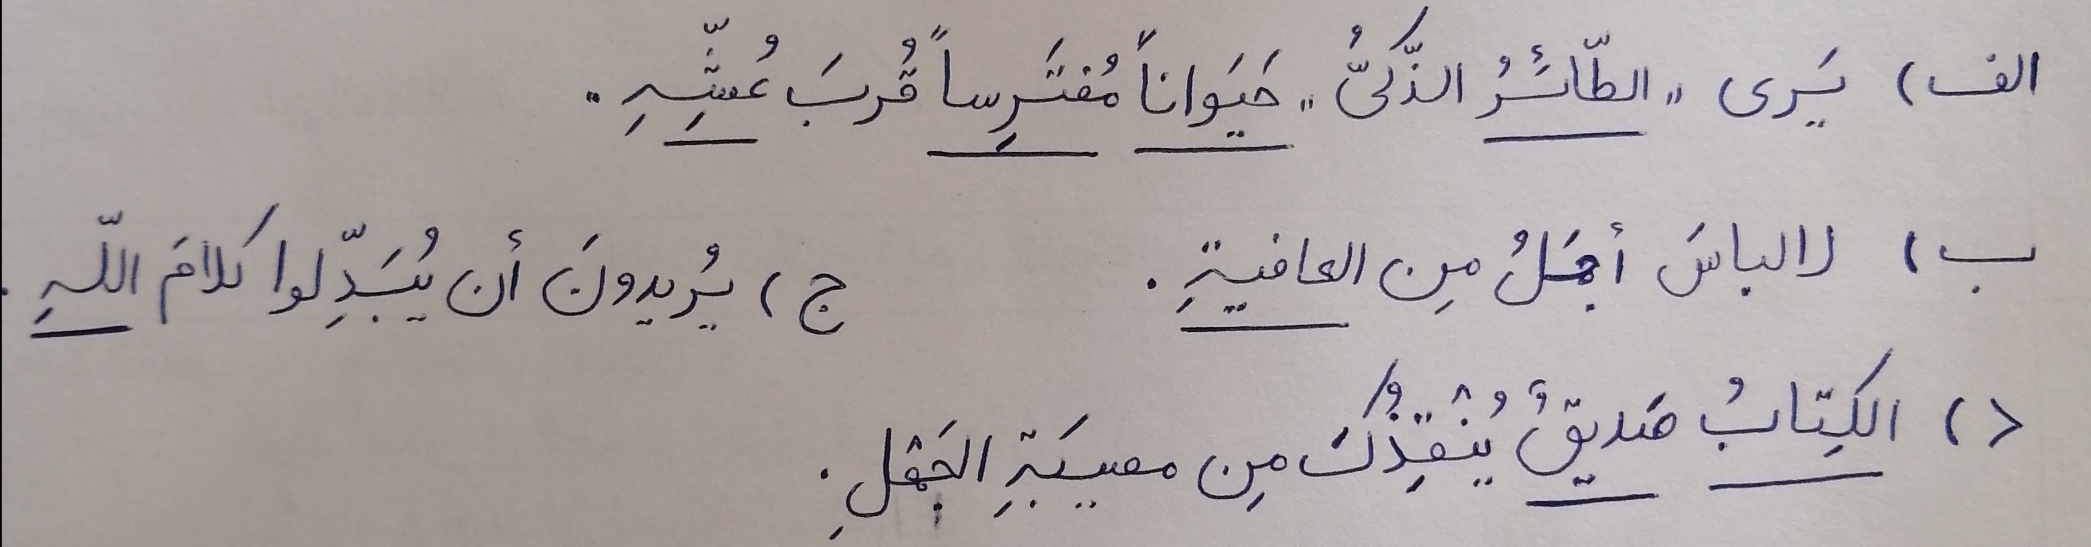 الف) يَرى «الطّائِرُ الذَّكيُّ» حَيَواناً مُفتَرِساً قُربَ عُشِّهِ.
ب) لالباسَ أجمَلُ مِن العافيةِ. ج) يُريدونَ أن يُبَدِّلوا كلامَ اللّهِ.
د) الكِتابُ صَديقٌ يُنْقِذُكَ مِن مصيبَةِ الجَهْلِ.